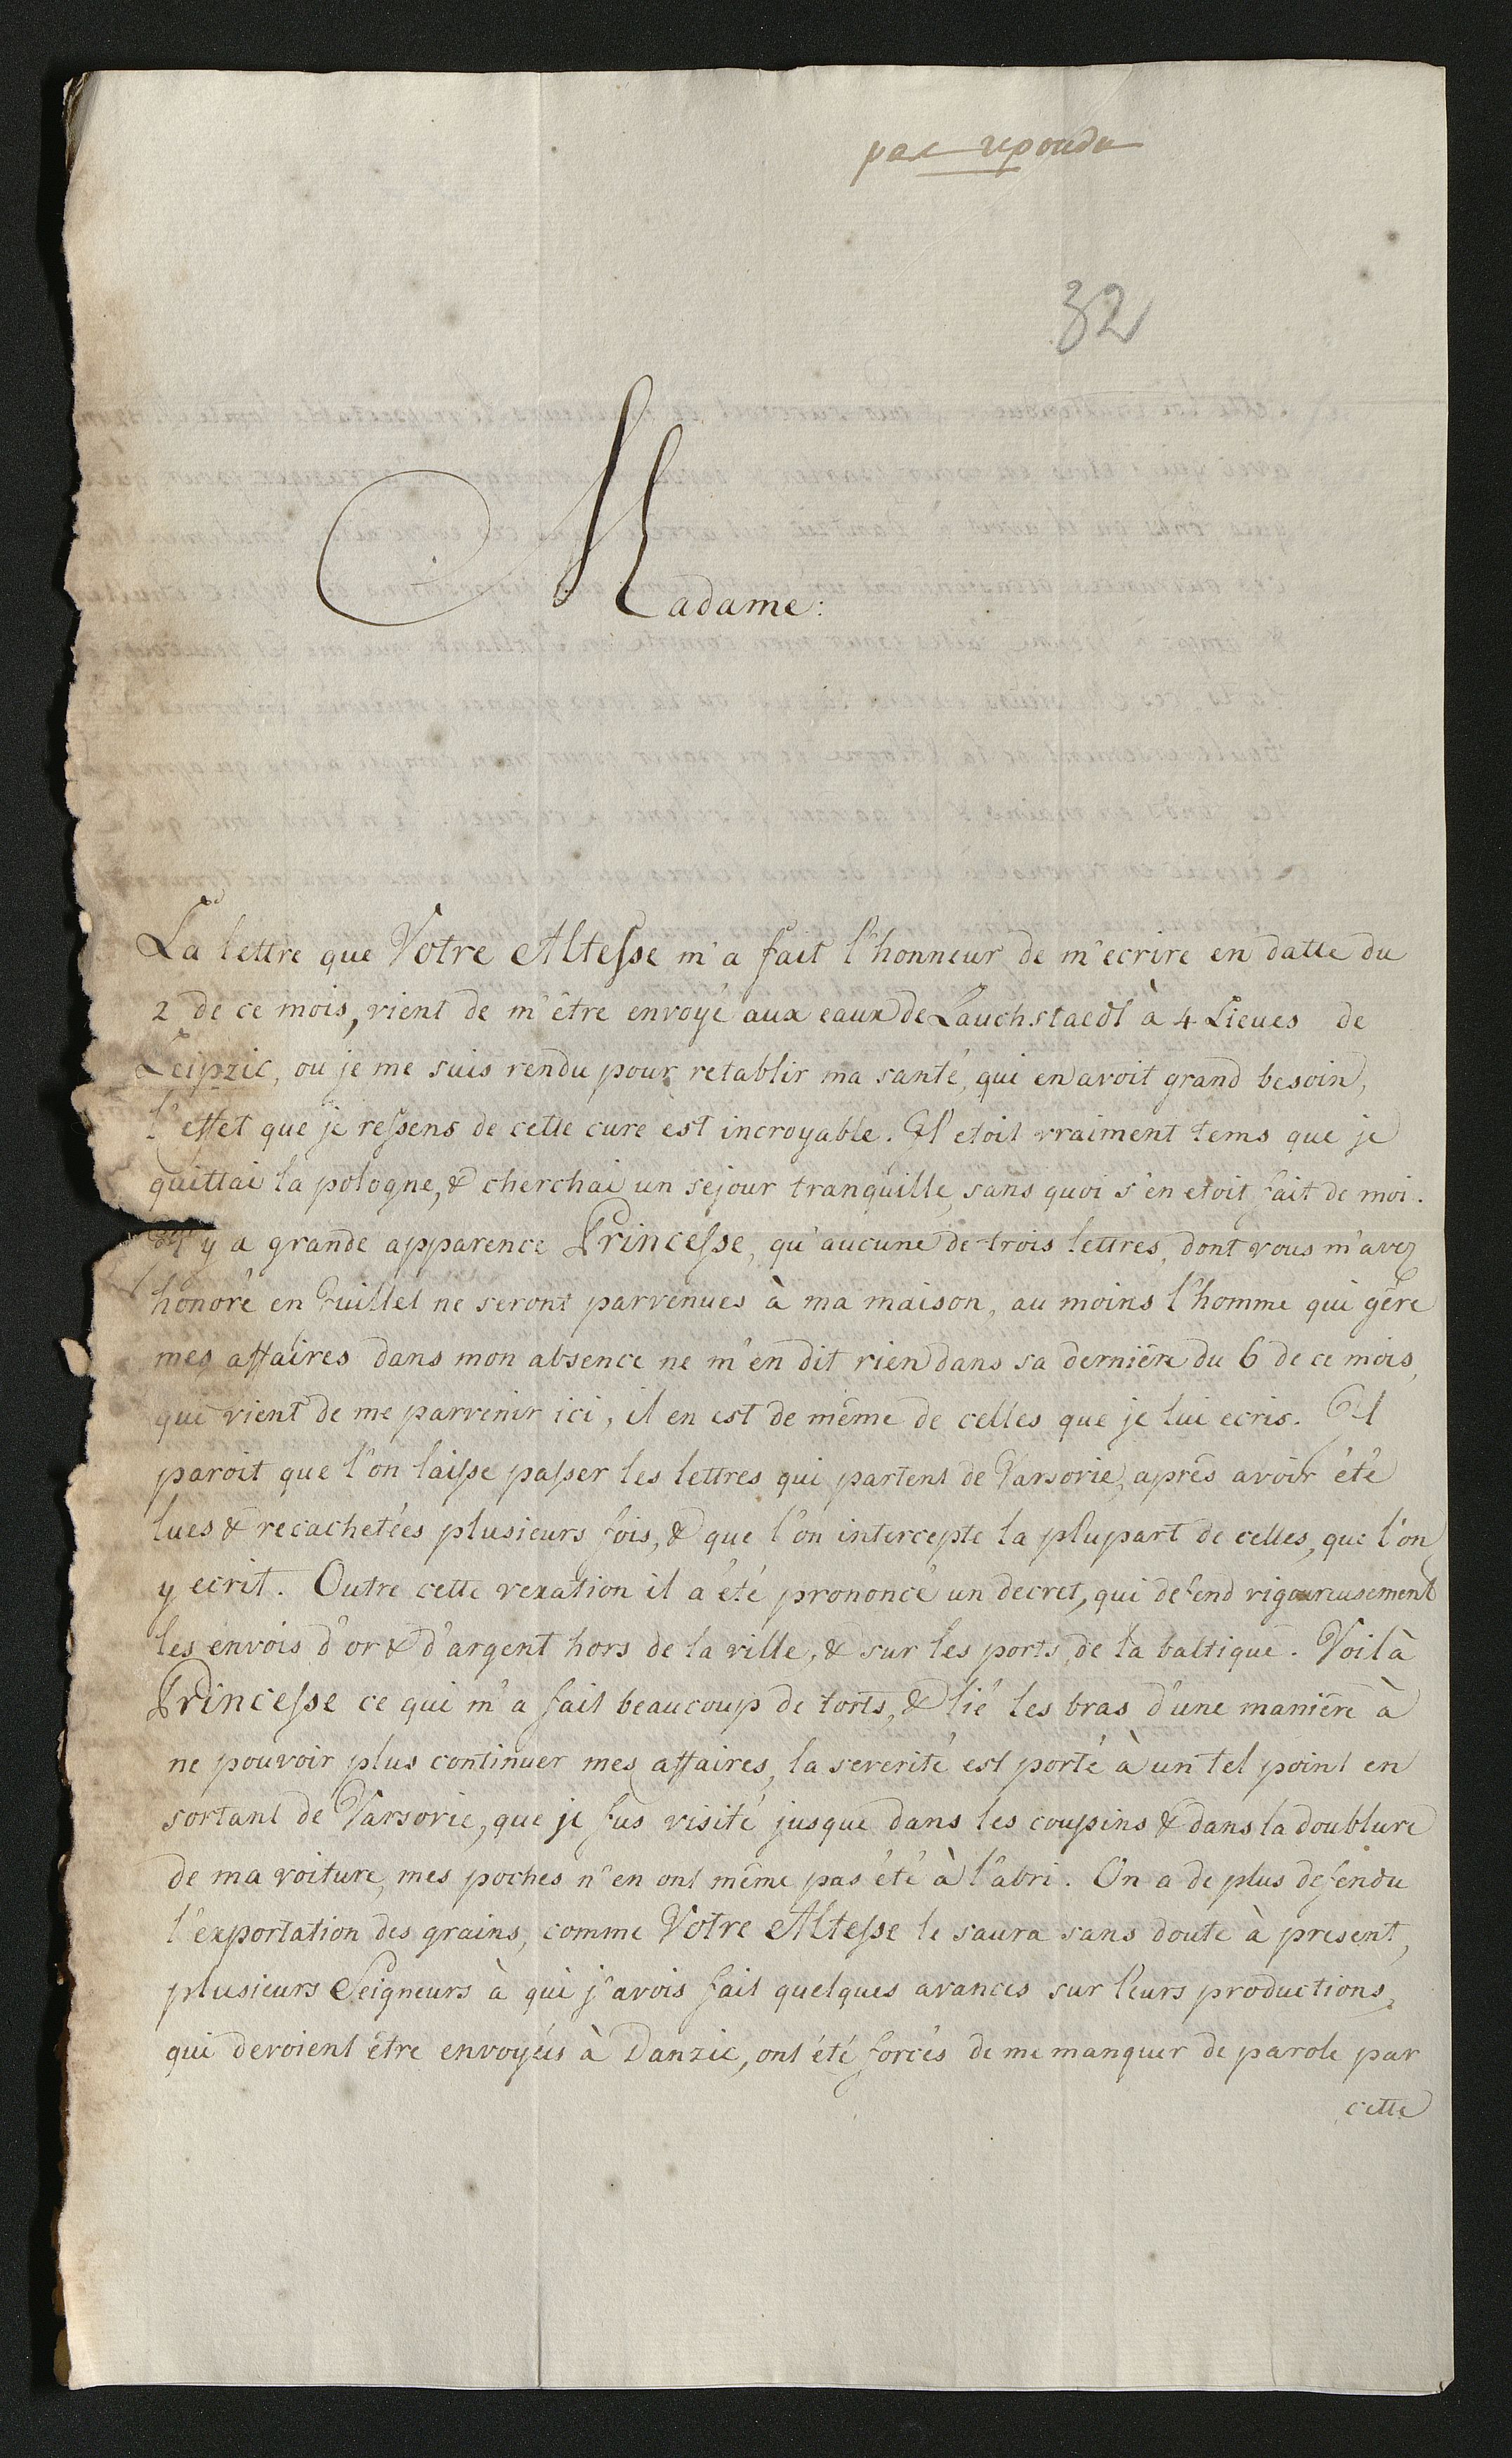 pas repondu
32
Madame:
La lettre que Votre Altesse m'a fait l'honneur de m'ecrire en datte du
2 de ce mois, vient de m'être envoyé aux eaux de Lauchstaedt à 4 Lieues de
Leipzic, ou je me suis rendu pour retablir ma santé, qui en avoit grand besoin,
l'effet que je ressens de cette cure èst incroyable. Il etoit vraiment tems que je
quittai la pologne, & cherchai un sejour tranquille, sans quoi s'en etoit fait de moi.
Il y a grande apparence Princesse, qu'aucune de trois lettres, dont vous m'avez
honoré en Juillet ne seront parvenues à ma maison, au moins l'homme qui gêre
mes affaires dans mon absence ne m'en dit rien dans sa derniêre du 6 de ce mois,
qui vient de me parvenir ici, il en est de même de celles que je lui ecris. Il
paroit que l'on laisse passer les lettres qui partent de Varsovie, aprês avoir été
lues & recachetées plusieurs fois, & que l'on intercepte la plupart de celles, que l'on
y ecrit. Outre cette vexation il a été prononcé un decret, qui defend vigoureusement
les envois d'or & d'argent hors de la ville, & sur les ports de la baltique. Voilà
Princesse ce qui m'a fait beaucoup de torts, & lié les bras d'une maniêre à
ne pouvoir plus continuer mes affaires, la severité est porté à un tel point en
sortant de Varsovie, que je fus visité jusque dans les coussins & dans la doublure
de ma voiture, mes poches n'en ont même pas été à l'abri. On a de plus defendu
l'exportation des grains, comme Votre Altesse le saura sans doute à present,
plusieurs Seigneurs à qui j'avois fait quelques avances sur leurs productions,
qui devoient être envoyés à Danzic, ont été forcés de me manquer de parole par
cette